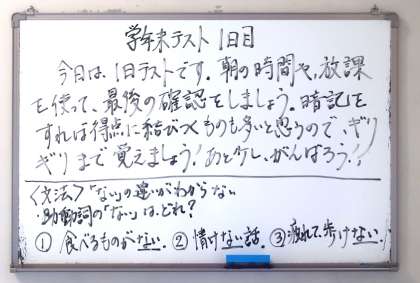 学年末テスト 1日目
今日は、1日テストです。朝の時間や、放課
を使って、最後の確認をしましょう。暗記を
すれば得点に結びつくものも多いと思うので、ギリ
ギリまで覚えましょう!あと少し、がんばろう!!
〈文法〉「ない」の違いがわからない
・助動詞の「ない」は、どれ?
① 食べるものがない。 ② 情けない話。 ③ 疲れて、歩けない。